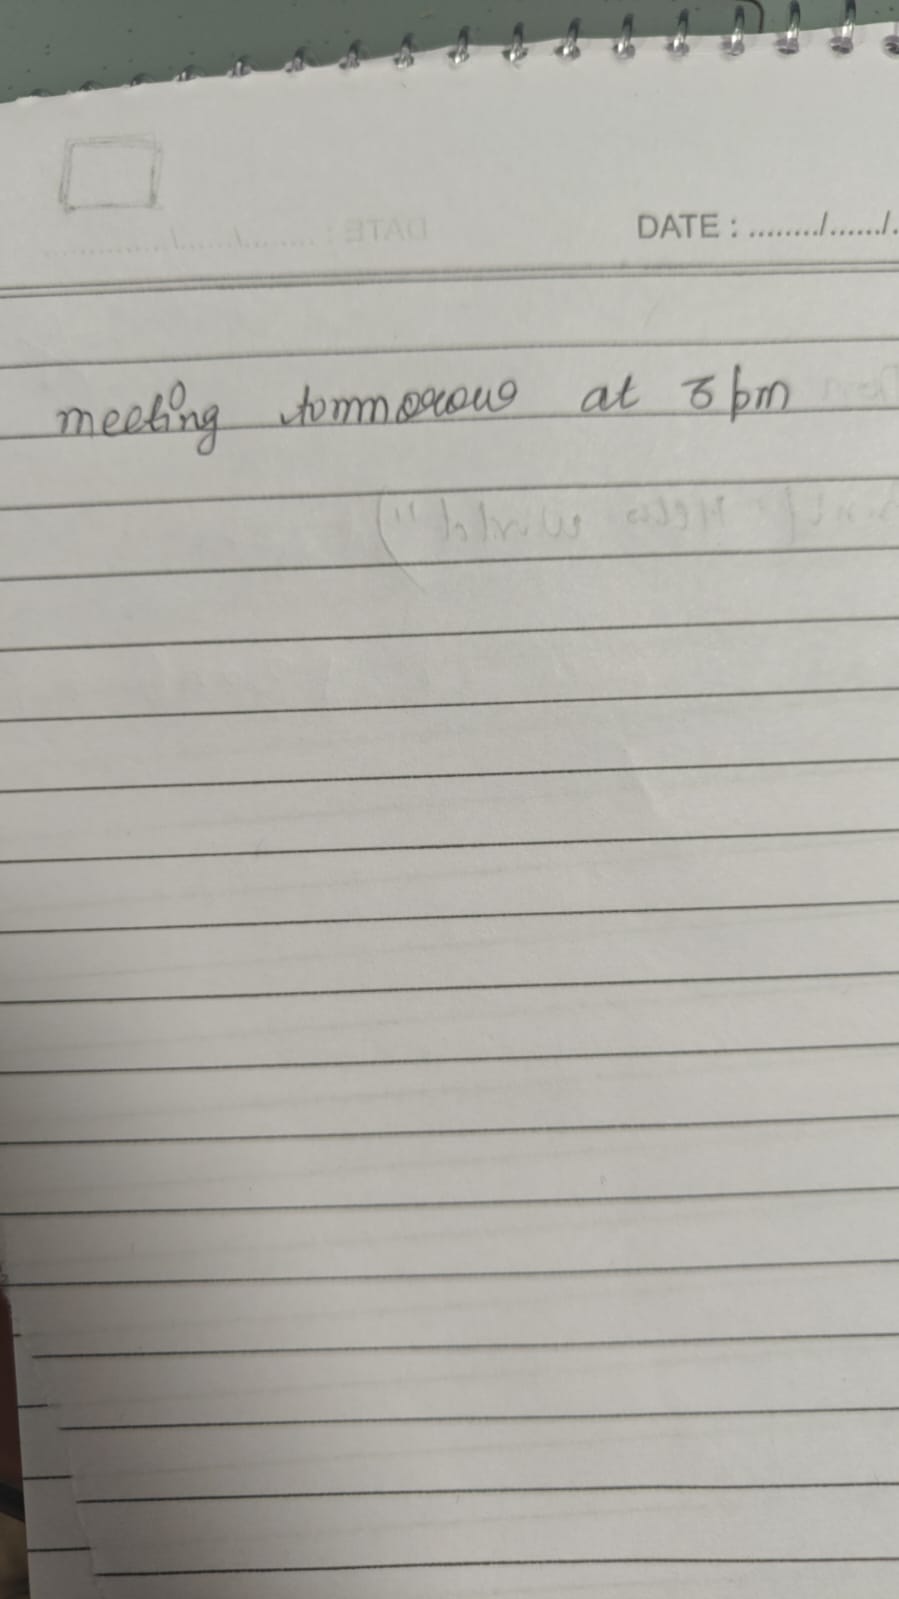 DATE : ......../....../.
meeting tommorow at 3 pm